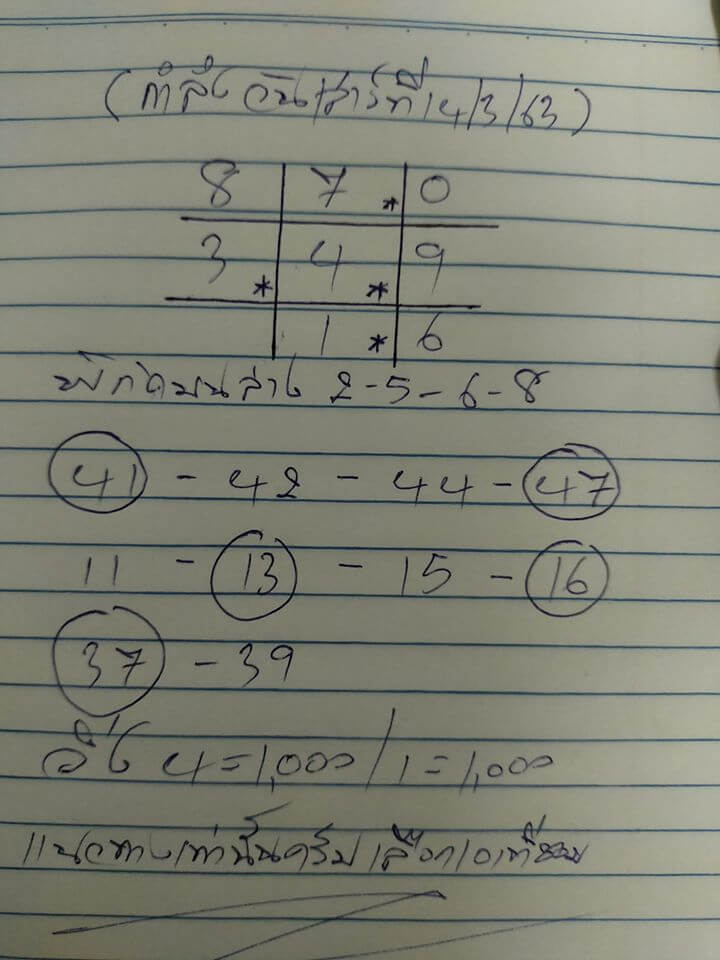 (กำลังวันเสาร์ที่14/3/63)
8 7 * 0
3 * 4 * 9
1 * 6
พิกัดบนล่าง 2-5-6-8
41 - 42 - 44 - 47
11 - 13 - 15 - 16
37 - 39
วิ่ง 4=1,000/1=1,000
แนวทางเท่านั้นครับเลือกเอาที่ชอบ